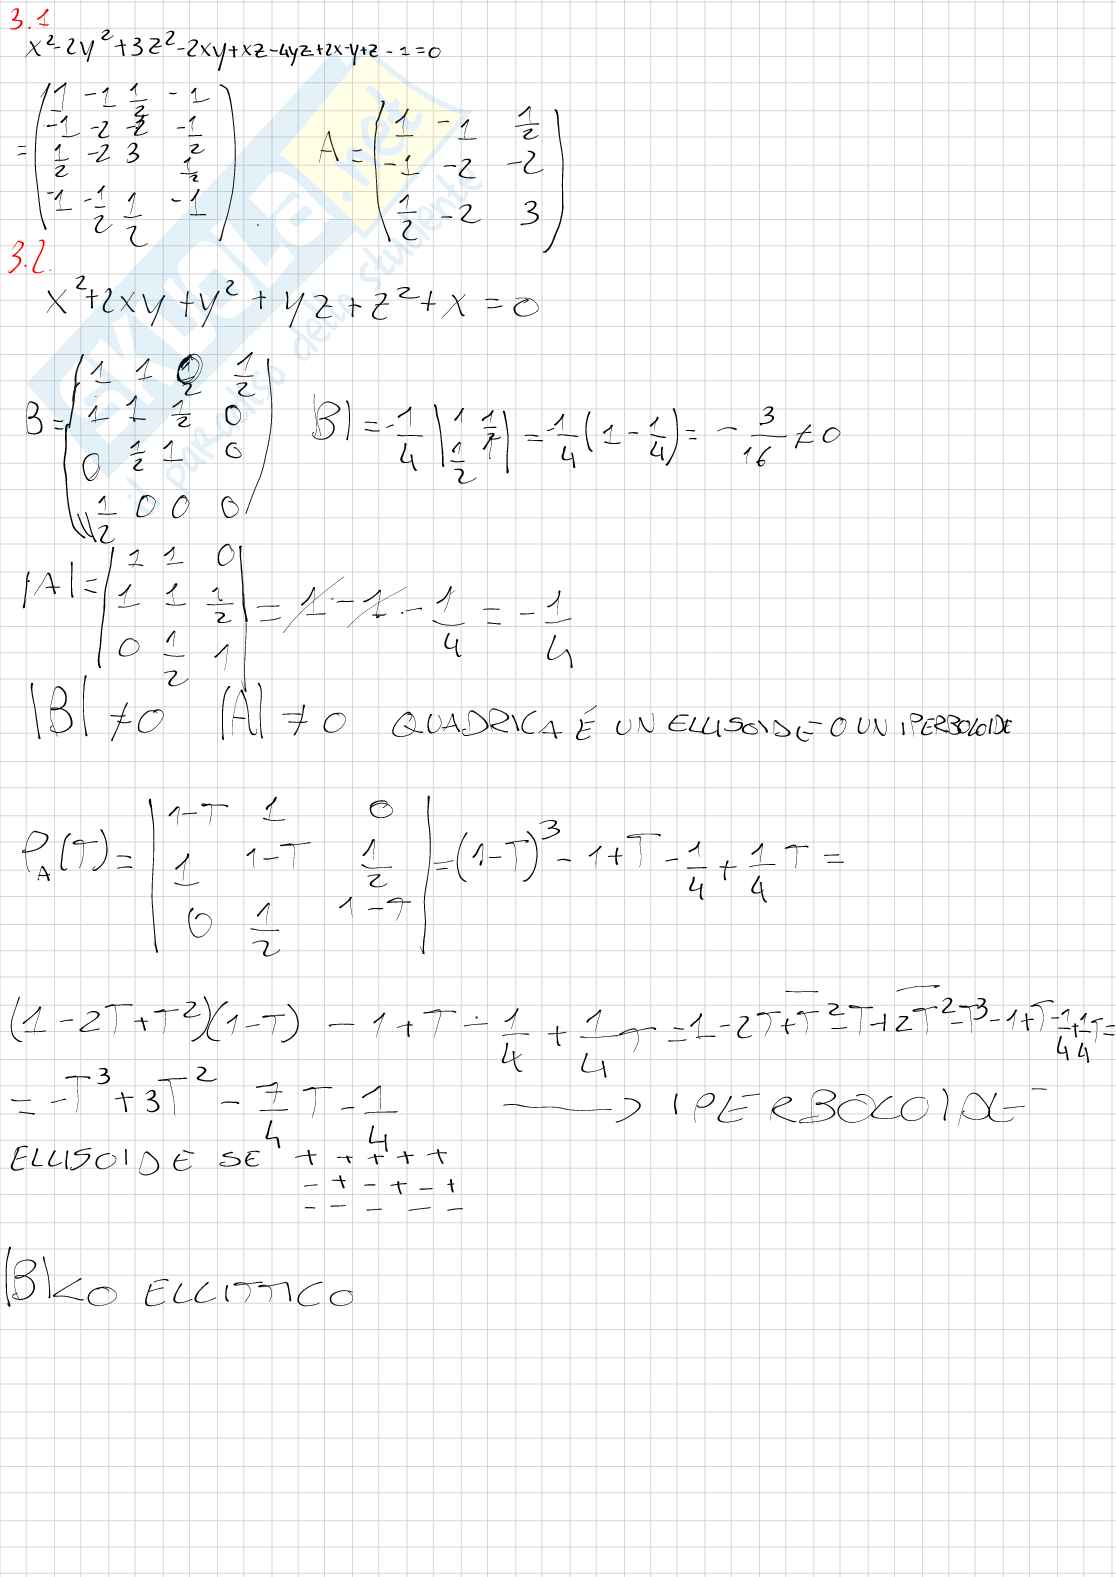 3.1
x²-2y²+3z²-2xy+xz-4yz+2x-y+z-1=0
= ( 1 -1 1/2 -1
-1 -2 -2 -1/2
1/2 -2 3 1/2
-1 -1/2 1/2 -1 )
A = ( 1 -1 1/2
-1 -2 -2
1/2 -2 3 )
3.2
x²+2xy+y²+yz+z²+x=0
B = ( 1 1 0 1/2
1 1 1/2 0
0 1/2 1 0
1/2 0 0 0 )
|B| = -1/4 | 1 1/2
1/2 1 | = -1/4 (1 - 1/4) = - 3/16 ≠ 0
|A| = | 1 1 0
1 1 1/2
0 1/2 1 | = 1 - 1 - 1/4 = - 1/4
|B| ≠ 0 |A| ≠ 0 QUADRICA É UN ELLISOIDE O UN IPERBOLOIDE
P_A(T) = | 1-T 1 0
1 1-T 1/2
0 1/2 1-T | = (1-T)³ - 1 + T - 1/4 + 1/4 T =
(1-2T+T²)(1-T) - 1 + T - 1/4 + 1/4 T = 1-2T+T²-T+2T²-T³-1+T-1/4+1/4T=
= -T³ + 3T² - 7/4 T - 1/4 → IPERBOLOIDE
ELLISOIDE SE + + + + +
- + - + - +
- - - - -
|B|<0 ELLITTICO
SKUOLA.net
il paradiso dello studente